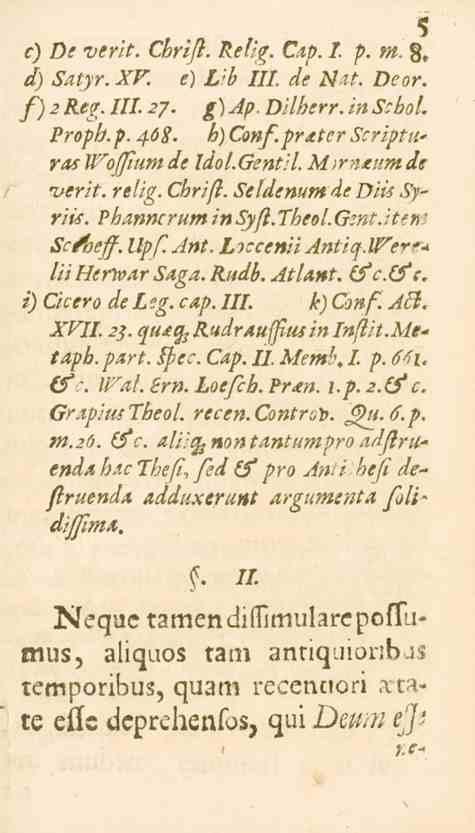 5
c) De verit. Chriſt. Relig. Cap. I. p. m. 8.
d) Satyr. XV. e) Lib III. de Nat. Deor.
f) 2 Reg. III. 27. g) Ap. Dilherr. in Schol.
Proph. p. 468. h) Conf. præter Scriptu-
ras Woſſium de Idol. Gentil. Mornæum de
verit. relig. Chriſt. Seldenum de Diis Sy-
riis. Phannerum in Syſt. Theol. Gent. item
Scheff. Upſ. Ant. Loccenii Antiq. Were-
lii Herwar Saga. Rudb. Atlant. &c. &c.
i) Cicero de Leg. cap. III. k) Conf. Act.
XVII. 23. quæq; Rudrauffius in Inſtit. Me-
taph. part. Spec. Cap. II. Memb. I. p. 661.
&c. Wal. Ern. Loeſch. Præn. 1. p. 2. & c.
Grapius Theol. recen. Controv. Qu. 6. p.
m. 26. &c. aliiq; non tantum pro adſtru-
enda hac Theſi, ſed & pro Antitheſi de-
ſtruenda adduxerunt argumenta ſoli-
diſſima.
§. II.
Neque tamen diſſimulare poſſu-
mus, aliquos tam antiquioribus
temporibus, quam recentiori æta-
te eſſe deprehenſos, qui Deum eſſe
ne-